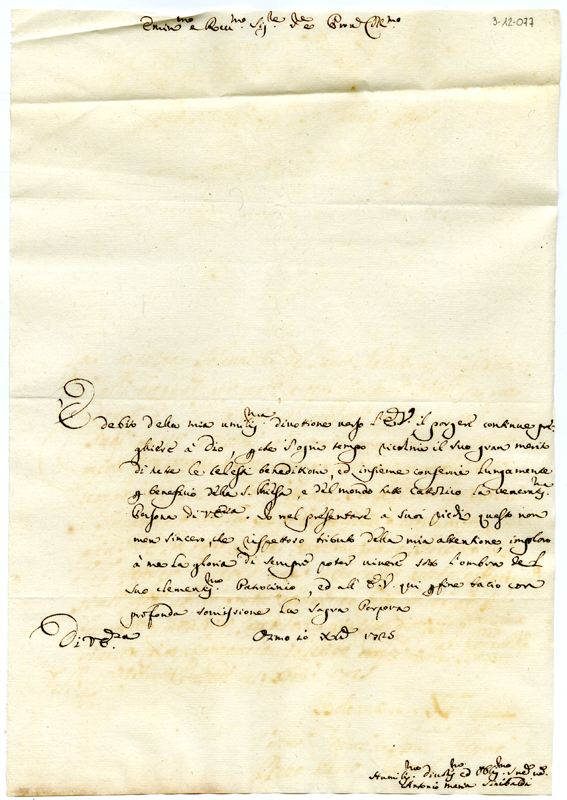 3-12-077
Emin.mo e Rev.mo Sig.re Sig.re e Pron Col.mo
È debito della mia umiliss.ma divotione verso l'E.V. il porgere continue pre-
ghiere à Dio, che d'ogni tempo ricolmi il suo gran merito
di tutte le celesti beneditioni, ed insieme conservi lungamente
beneficio della S. Chiesa, e del mondo tutto Catolico la venerat.ma
Persona di V. Em.za. Io nel presentare à suoi piedi questo non
men sincero, che rispettoso tributo della mia attentione, imploro
à me la gloria di sempre poter vivere sotto l'ombra del
suo clementiss.mo Patrocinio, ed all' E.V. qui fine bacio con
profonda somissione la Sagra Porpora
Di V. Em.za
Osimo 10 1725
Humiliss.mo Divotiss.mo ed Oblig.mo
Antonio Maria Sinibaldi